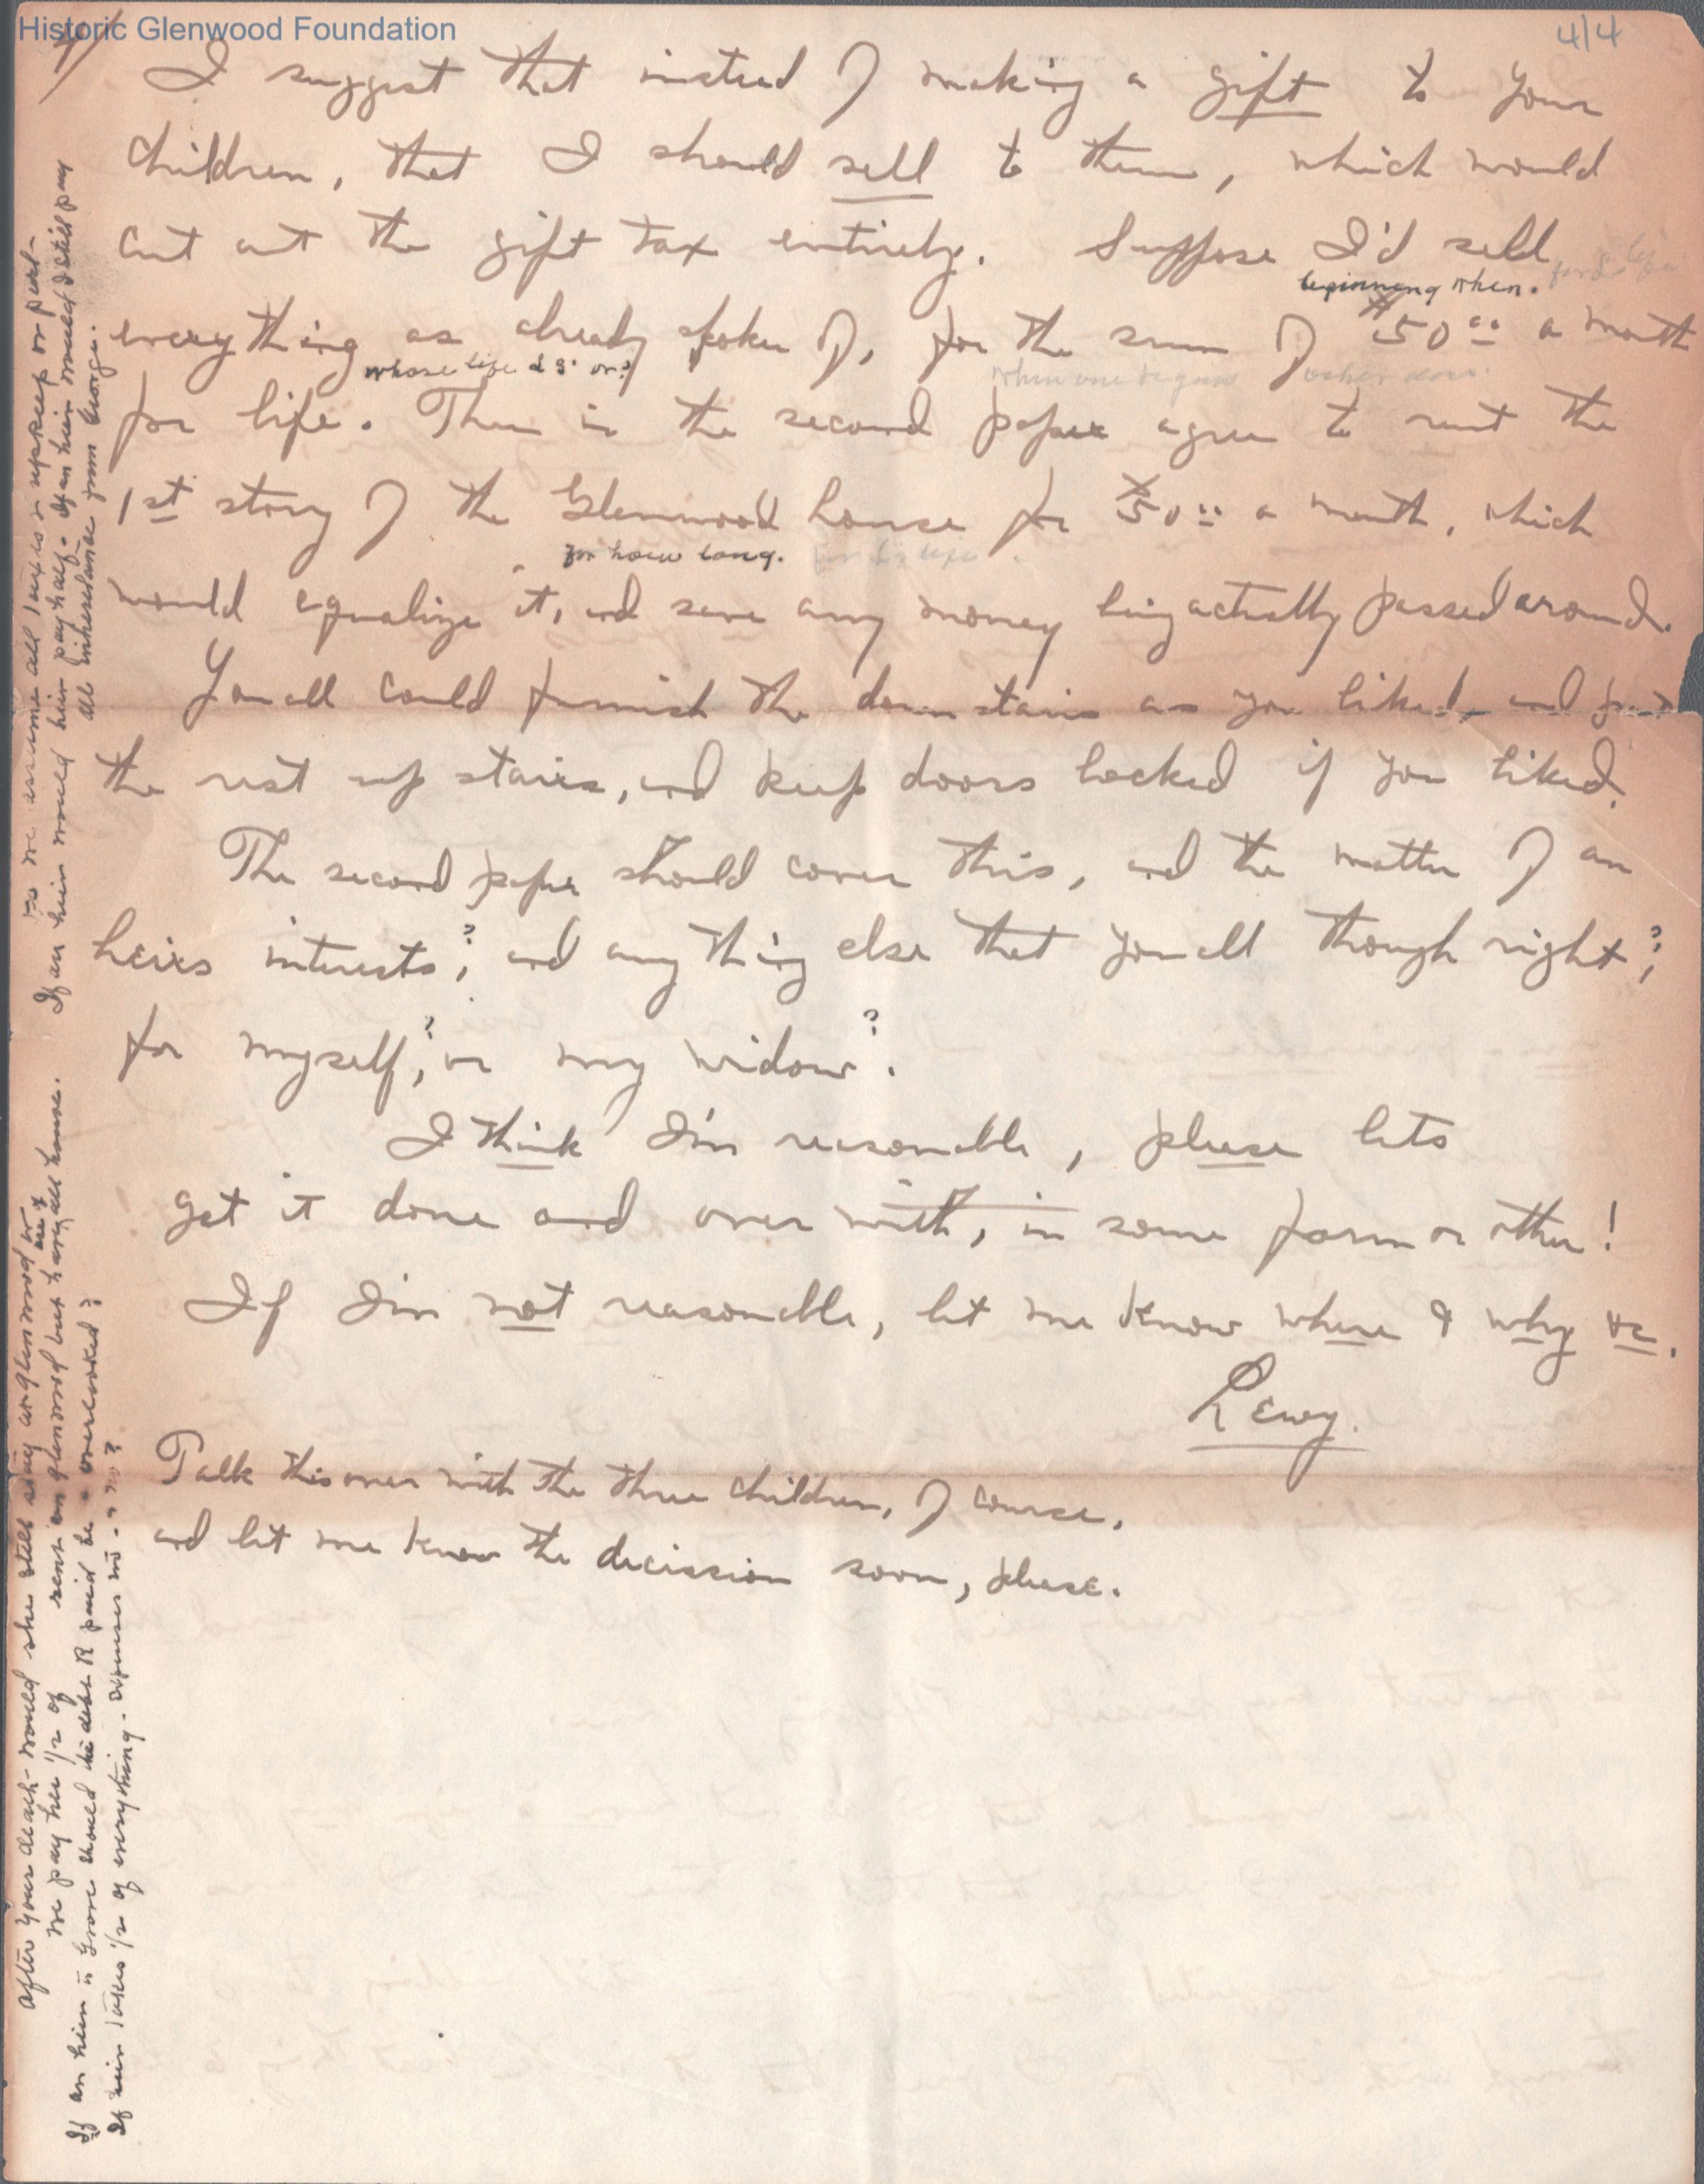 Historic Glenwood Foundation
4/4
4/
I suggest that instead of making a gift to your
children, that I should sell to them, which would
cut out the gift tax entirely. Suppose I'd sell
beginning when.
everything as already spoken of, for the sum of $50.00 a month
whose life
when one begins other does.
for life. Then in the second paper agree to rent the
1st story of the Glenwood house for $50.00 a month, which
for how long. for his life
would equalize it, and save any money being actually passed around.
You all could furnish the down stairs as you liked, and
the rest up stairs, and keep doors locked if you liked.
The second paper should cover this, and the matter of an
heirs interests?; and any thing else that you all though right?;
for myself?, or my widow?.
I think I'm reasonable, please lets
get it done and over with, in some form or other!
If I'm not reasonable, let me know where & why &c.
Lewy.
Talk this over with the three children, of course,
and let me know the decission soon, please.
Do we assume all taxes in upkeep or part-
If an heir would heir pay half. If an heir would I still pay
all inheritance from George.
After your death- would she still stay at glenwood or
we pay her 1/2 of rent on glenwood but have all house.
If an heir is Grove should debt R paid be overlooked?
If heir takes 1/2 of everything - expenses